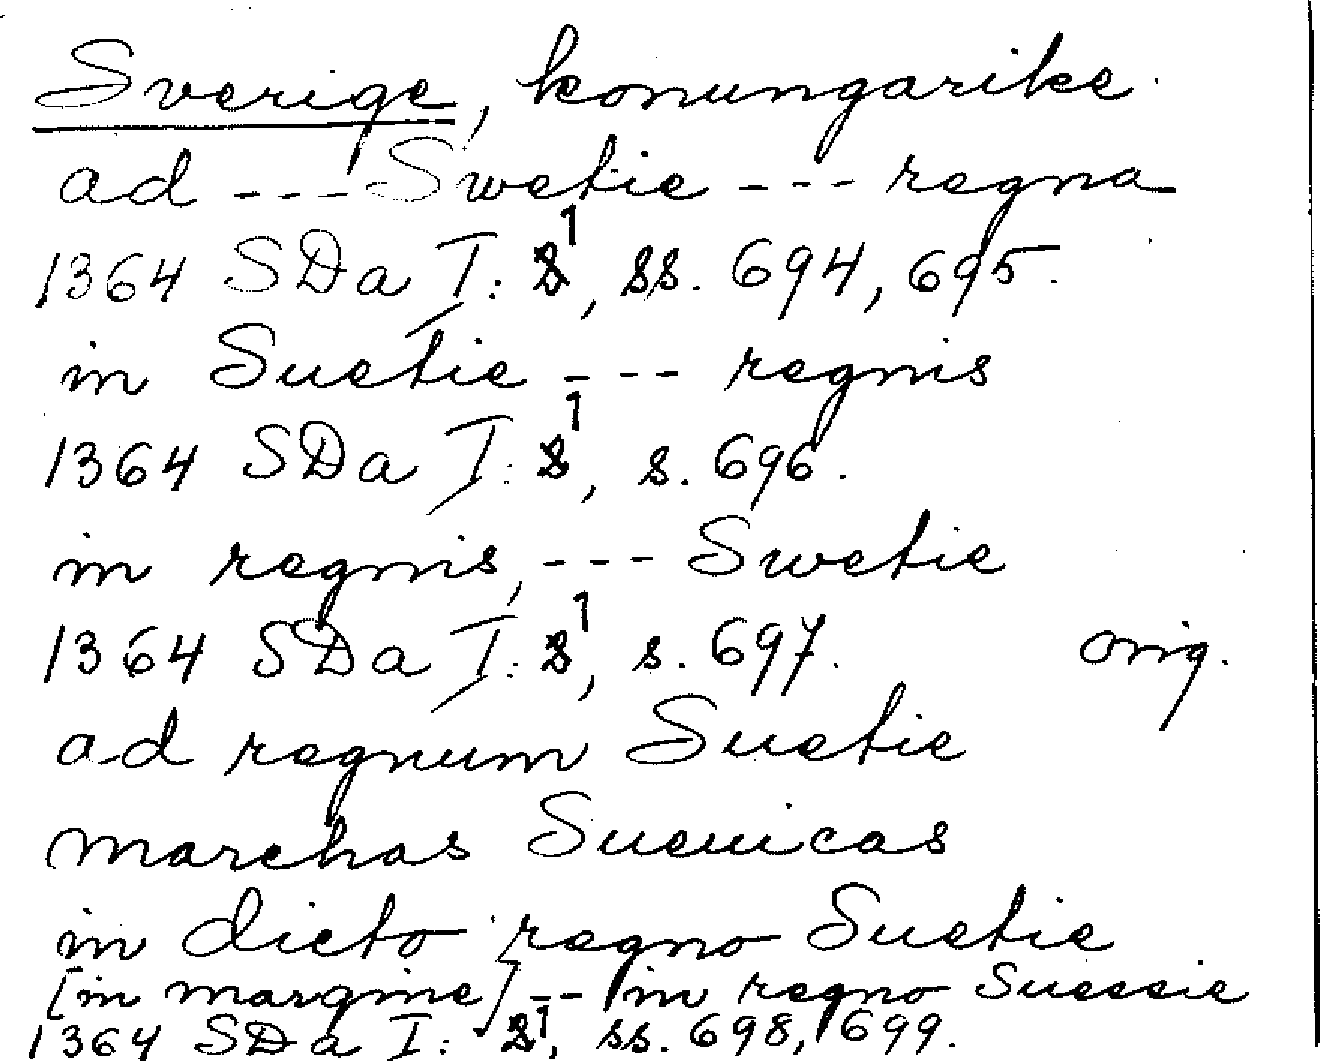 Sverige, konungarike
ad --- Swetie --- regna
1364 SDa I: 1, ss. 694, 695.
in Suetie --- regnis
1364 SDa I: 1, s. 696.
in regnis, --- Swetie
1364 SDa I: 1, s. 697. orig.
ad regnum Suetie
marchas Sueuicas
in dicto regno Suetie
[in margine] -- in regno Suessie
1364 SDa I: 1, ss. 698, 699.